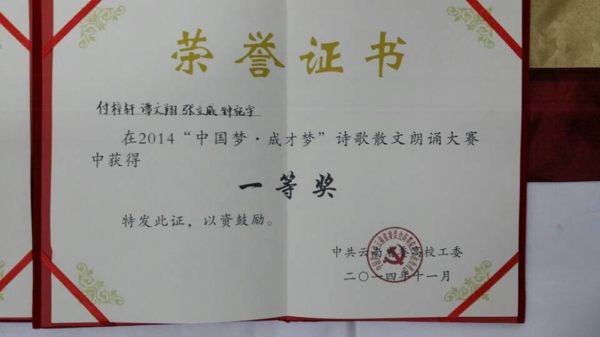 荣誉证书
付梓轩 谭文翔 张文威
在2014“中国梦·成才梦”诗歌散文朗诵大赛
中获得
一等奖
特发此证，以资鼓励。
中共云南省委高校工委
二〇一四年十一月